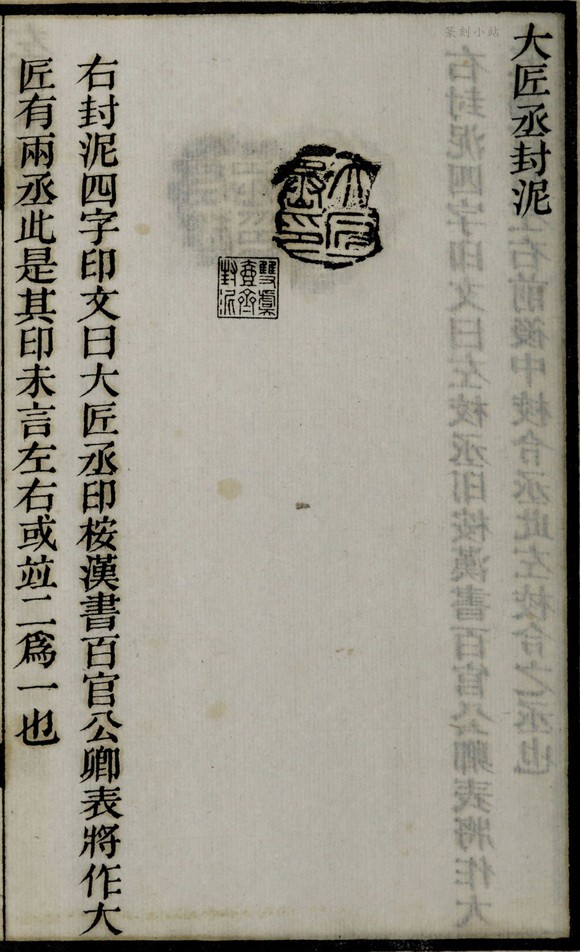 篆刻小站
大匠丞封泥
大匠丞印
雙虞壺齋封泥
右封泥四字印文曰大匠丞印桉漢書百官公卿表將作大
匠有兩丞此是其印未言左右或竝二爲一也